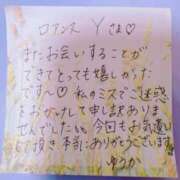 ロアンス Yさま♡
またお会いすることが
できてとっても嬉しかった
です〜♡ 私のミスでご迷惑
をおかけして申し訳ありま
せんでした💦 今回もお気遣い
も頂き 本当にありがとうございます
ゆうか